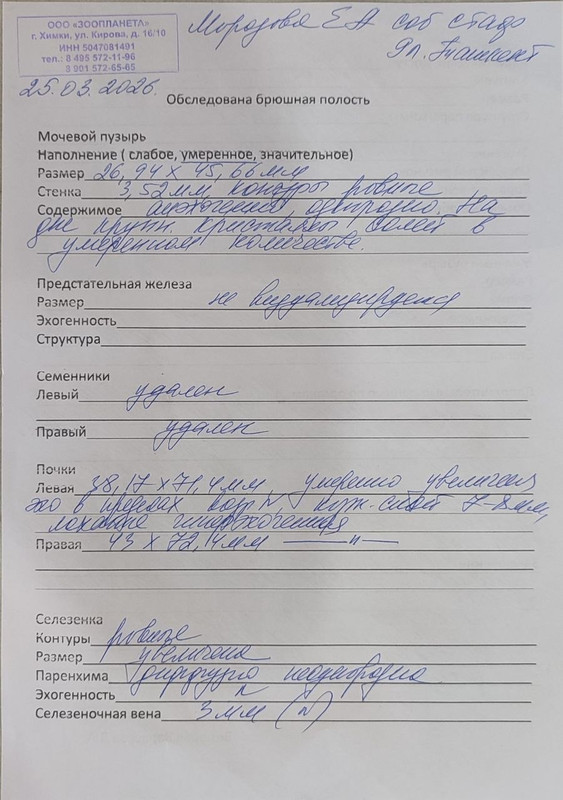 ООО «ЗООПЛАНЕТА»
г. Химки, ул. Кирова, д. 16/10
ИНН 5047081491
тел.: 8 495 572-11-96
8 901 572-65-65
Морозова ЕА соб
25.03.2026.
Обследована брюшная полость
Мочевой пузырь
Наполнение ( слабое, умеренное, значительное)
Размер 26,94 х 45,66 мм
Стенка 3,52 мм, контуры ровные
Содержимое анэхогенно однородно. На
дне крупн. кристаллы солей в
умеренном количестве.
Предстательная железа
Размер не визуализируется
Эхогенность
Структура
Семенники
Левый удален
Правый удален
Почки
Левая 38,17 х 71,4 мм, умеренно увеличена
эхо в пределах N, слой 7-8 мм,
лоханка гиперэхогенная
Правая 43 х 72,14 мм — " —
Селезенка
Контуры ровные
Размер увеличена
Паренхима диффузно неоднородна
Эхогенность N
Селезеночная вена 3 мм (N)